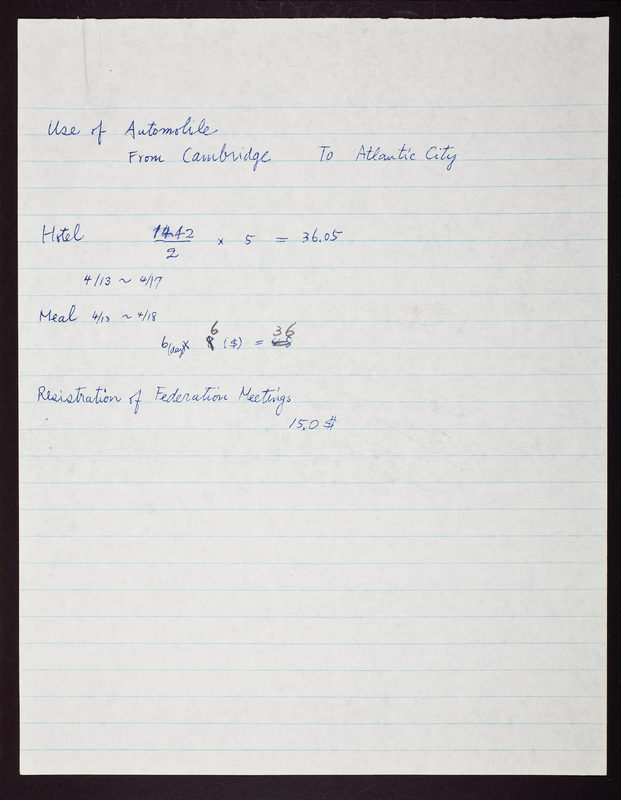 Use of Automobile
From Cambridge To Atlantic City
Hotel 14.42 × 5 = 36.05
2
4/13 ~ 4/17
Meal 4/13 ~ 4/18
6 36
6(day)× 8 ($) = 48
Resistration of Federation Meetings
15.0 $